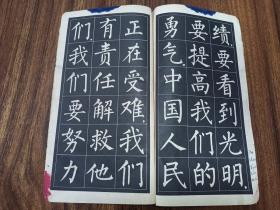 绩，要看到光明，
要提高我们的
勇气。中国人民
正在受难，我们
有责任解救他
们，我们要努力